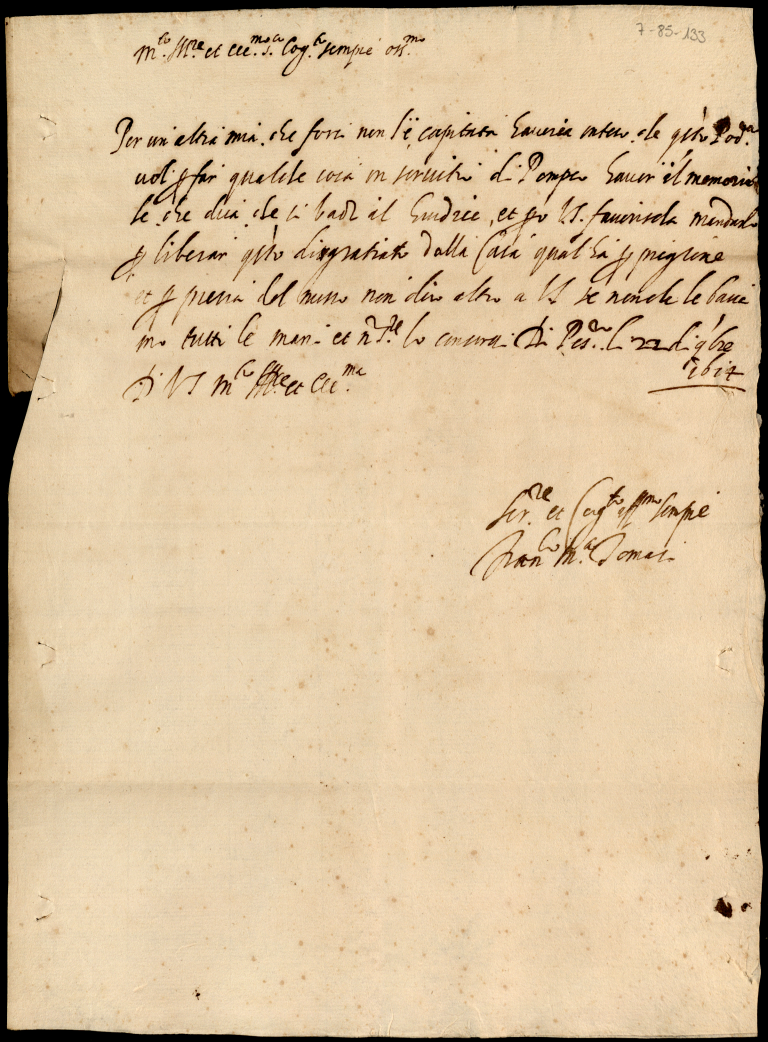 7-85-133
m.to Ill.re et ecc.mo s.r Cog.to sempre oss.mo
Per un'altra mia che forsi non l'è capitata haverà inteso che q.sto Pod.a
vol p far qualche cosa in servitio di Pompeo haver il memoria
le che dica che si vadi al Giudice, et p.o VS. favorisca mandarlo
p liberar q.sto disgratiato dalla Casa qual ha p prigione
et p pressa del messo non dico altro a VS se non che le bacia
mo tutti le mani et n.ro S.re lo conservi Di Pes.ro li 22 di 9bre
1614
Di VS m.to Ill.re et ecc.ma
Ser.re et Cog.to aff.mo sempre
Fran.co M.a Tomasi